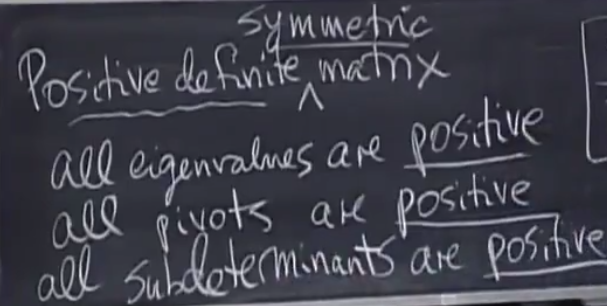 symmetric
Positive definite ^ matrix
all eigenvalues are positive
all pivots are positive
all subdeterminants are positive